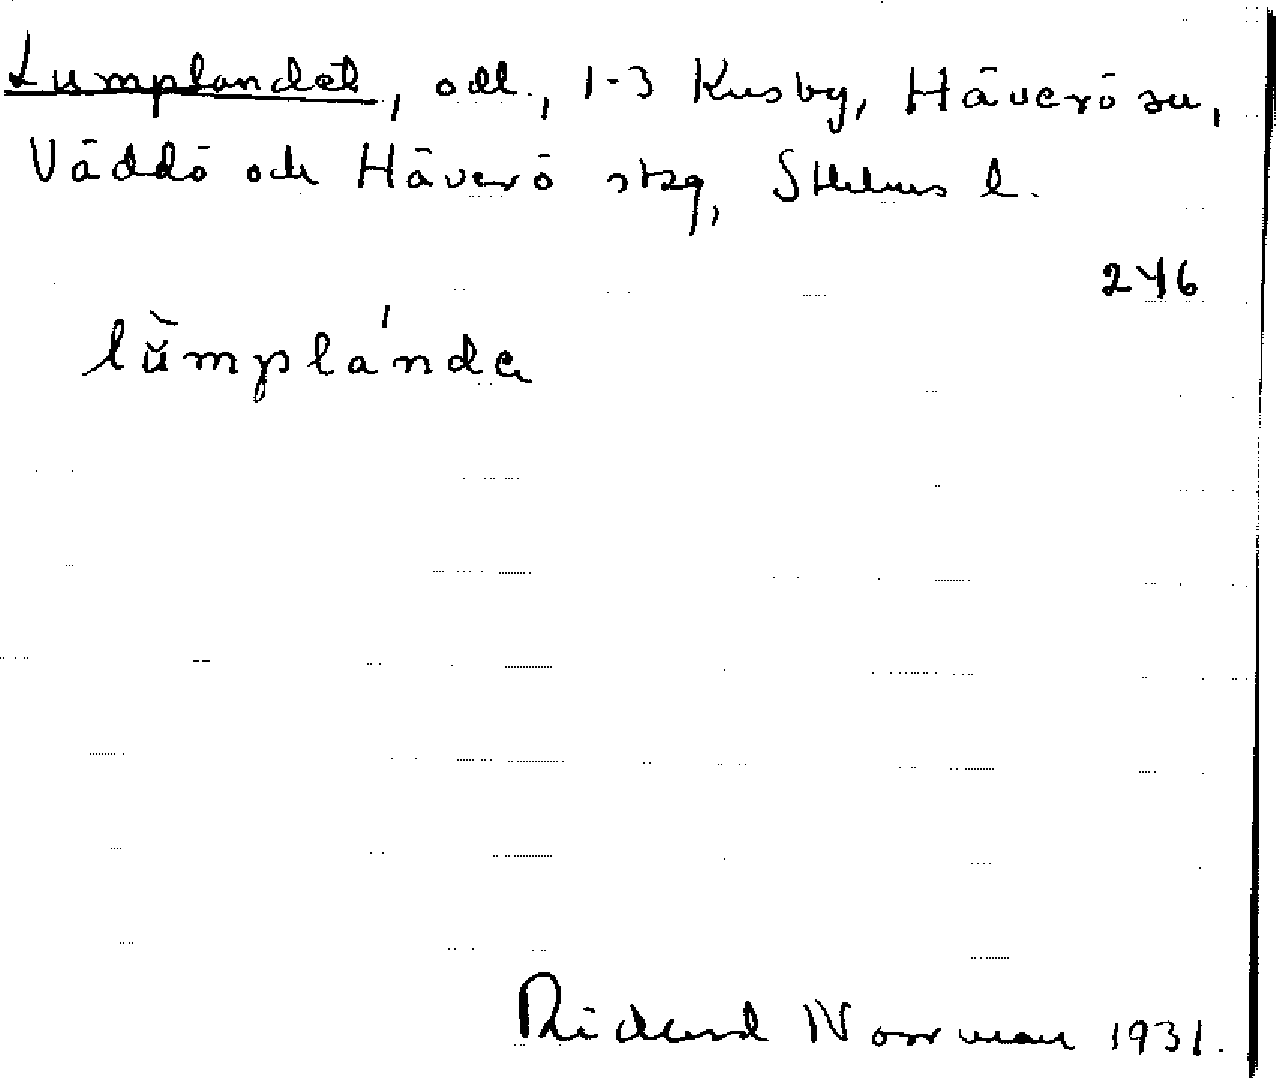 Lumplandet, odl., 1-3 Kusby, Häverö sn,
Väddö och Häverö skg, Sthlms l.
246
lŭ̀mplánda
Rickard Norrman 1931.